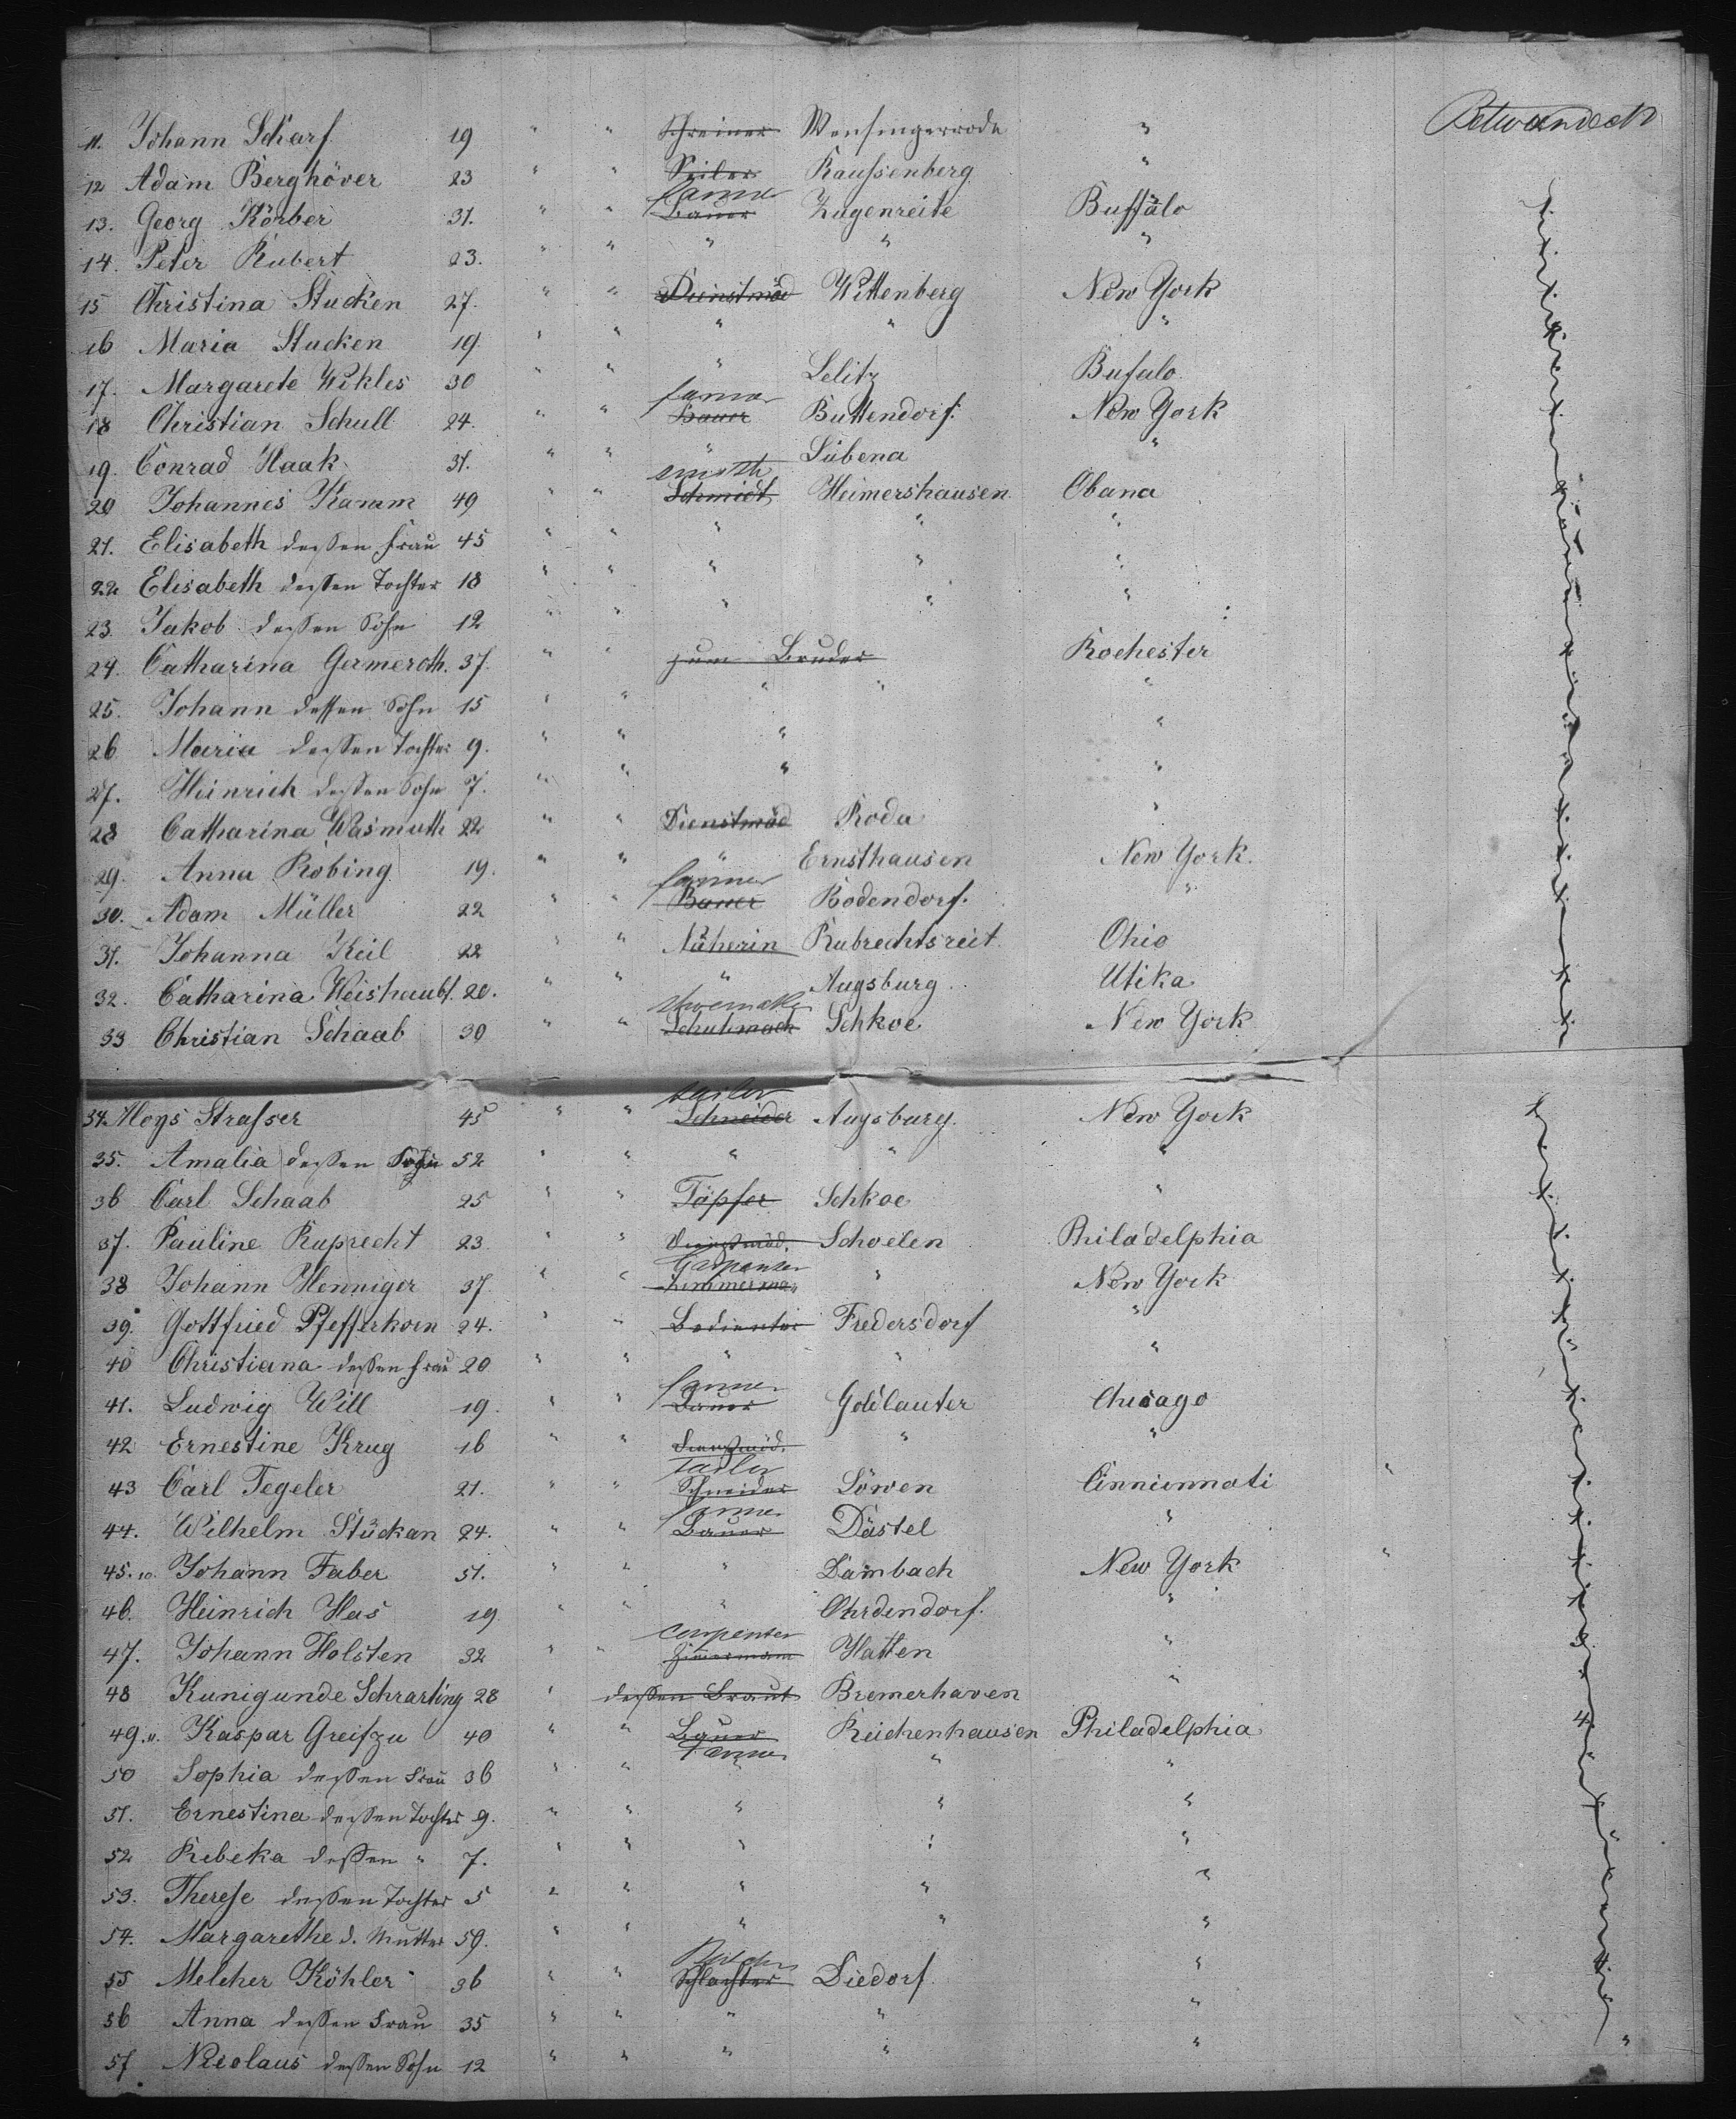 Betwendeck
11. Johann Scharf 19 " " Schreiner Wensingerrode "
12 Adam Berghöver 23 " " Seiler Raussenberg "
13. Georg Körber 31. " " farmer Bauer Zugenreite Buffalo
14. Peter Rubert 23. " " " " "
15 Christina Stucken 27. " " Dienstmäd Wittenberg New York
16 Maria Stucken 19. " " " " "
17. Margarete Wikles 30 " " " Lelitz Bufalo
18 Christian Schull 24. " " farmer Bauer Buttendorf. New York
19. Conrad Haak 31. " " " Lübena "
20 Johannes Karam 49 " " smith Schmidt Heimershausen Obana
21. Elisabeth dessen Frau 45 " " " " "
22 Elisabeth dessen Tochter 18 " " " " "
23. Jakob dessen Sohn 12 " " " " "
24. Catharina Germeroth. 37. " " zum Bruder Rochester
25. Johann dessen Sohn 15 " " " " "
26 Maria dessen Tochter 9. " " " "
27. Heinrich dessen Sohn 7. " " " "
28 Catharina Wasmuth 22 " " Dienstmäd Roda "
29. Anna Robing 19. " " " Ernsthausen New York.
30. Adam Müller 22 " " farmer Bauer Rodendorf. "
31. Johanna Keil 22 " " Näherin Rubrechtsreit. Ohio
32. Catharina Weishaubt. 20. " " " Augsburg Utika
33 Christian Schaab 30 " " shoemaker Schuhmach Schkoe New York
34. Aloys Strasser 45 " " tailor Schneider Augsburg. New York
35. Amalia dessen 52 " " " " "
36 Carl Schaab 25 " " Töpfer Schkoe "
37. Pauline Ruprecht 23 " " Dienstmäd. Schoelen Philadelphia
38 Johann Henniger 37. " " Carpenter Zimmerma " New York
39. Gottfried Pfefferkorn 24. " " Bedienter Fredersdorf "
40 Christiana dessen Frau 20 " " " " "
41. Ludwig Will 19. " " farmer Bauer Goldlauter Chicago
42 Ernestine Krug 16 " " Dienstmäd. " "
43 Carl Tegeler 21. " " tailor Schneider Löwen Cinnicnnati "
44. Wilhelm Stückan 24. " " farmer Bauer Dästel "
45. 10. Johann Faber 51. " " " Dambach New York "
46. Heinrich Has 19 " " " Ohrdendorf. "
47. Johann Holsten 32 " " carpenter Zimmermam Hatten "
48 Kunigunde Schrarting 28 " dessen Braut Bremerhaven "
49. 11. Kaspar Greifzu 40 " " Bauer Farmer Reichenhausen Philadelphia
50 Sophia dessen Frau 36 " " " " "
51. Ernestina dessen Tochter 9. " " " " "
52 Rebeka dessen " 7. " " " " "
53. Therese dessen Tochter 5 " " " " "
54. Margarethe d. Mutter 59. " " " " "
55 Melcher Köhler 36 " " Schlachter Diedorf. "
56 Anna dessen Frau 35 " " " " "
57 Nicolaus dessen Sohn 12 " " " " "